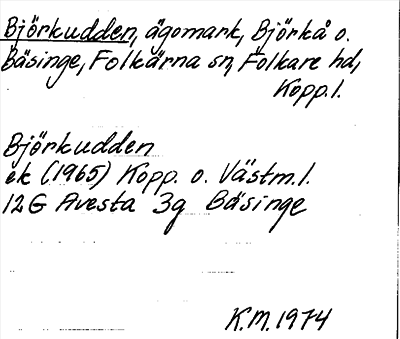 Björkudden, ägomark, Björkå o.
Bäsinge, Folkärna sn, Folkare hd,
Kopp.l.
Björkudden
ek (1965) Kopp. o. Västm.l.
12G Avesta 3g Bäsinge
K.M. 1974